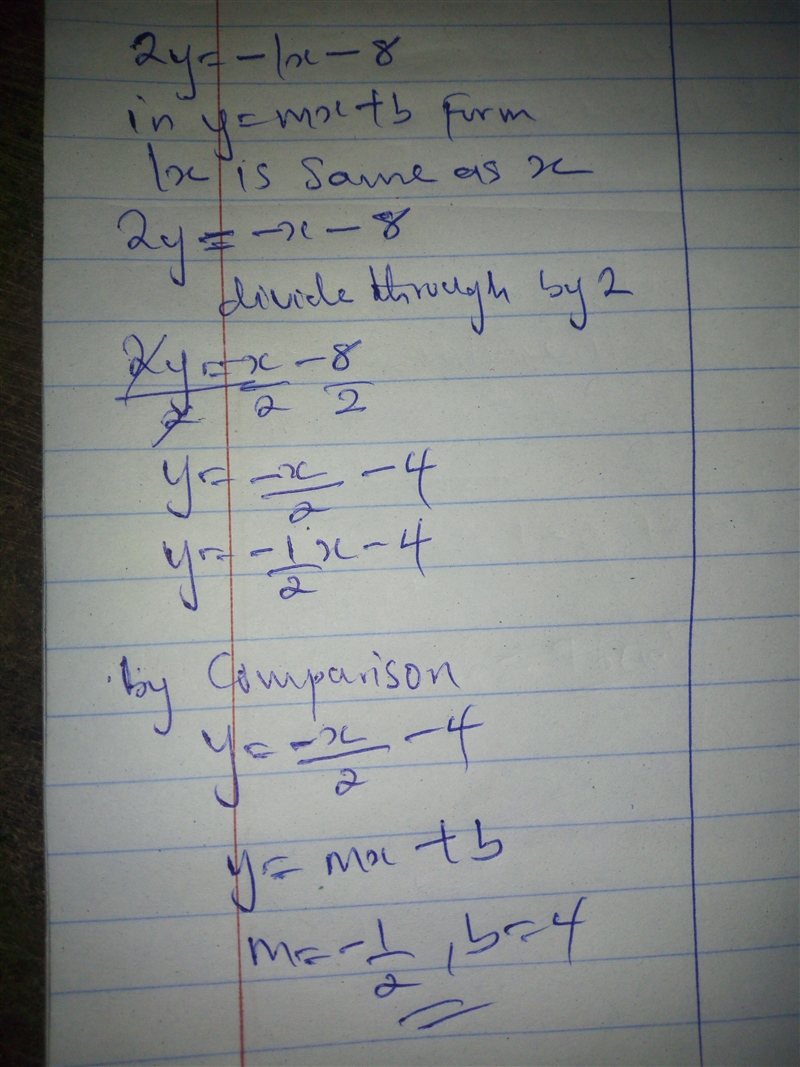 2y = -1x - 8
in y = mx + b form
1x is same as x
2y = -x - 8
divide through by 2
2y/2 = -x/2 - 8/2
y = -x/2 - 4
y = -1/2 x - 4
by Comparison
y = -x/2 - 4
y = mx + b
m = -1/2, b = 4